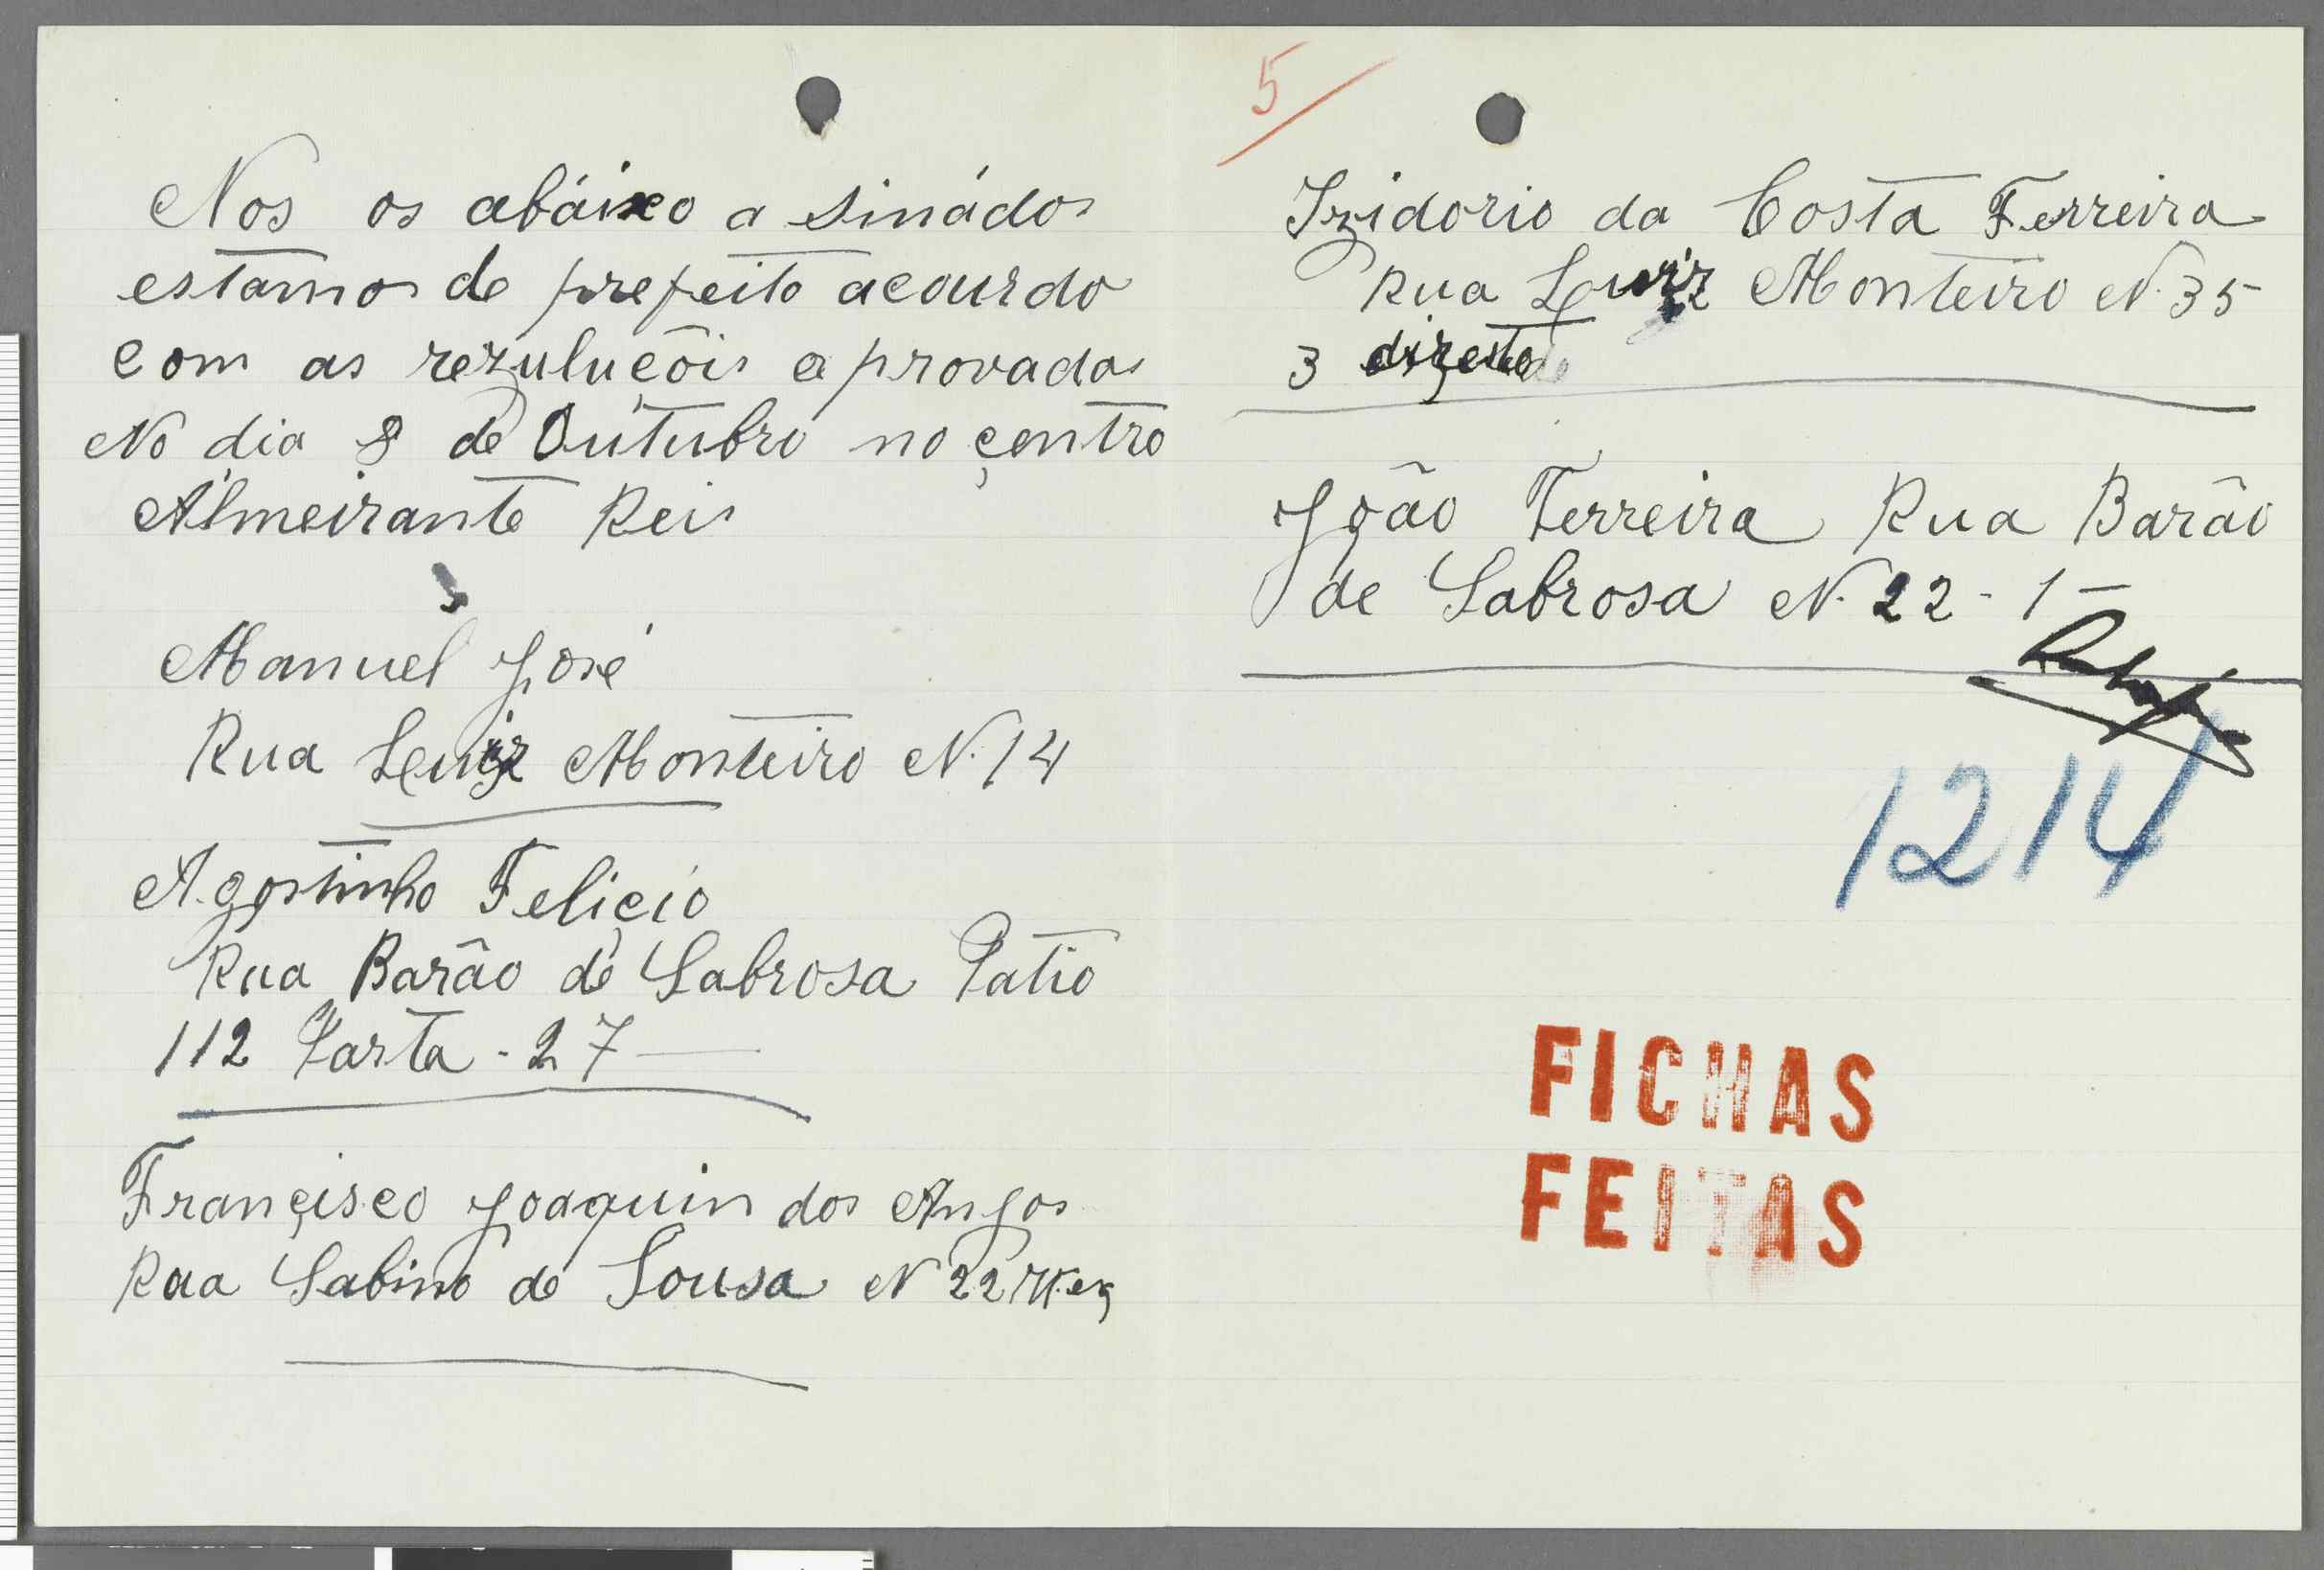 Nos os abáixo a sinádos
estamos de prefeito acourdo
com as rezuluçõis a provadas
No dia 8 de Outubro no çentro
Álmeirante Reis
Manuel José
Rua Luiz Monteiro N. 14
Agostinho Feliçio
Rua Barão de Sabrosa Patio
112 Parta - 27
Françisco Joaquin dos Anjos
Rua Sabino de Sousa N 22
5
Izidorio da Costa Ferreira
Rua Luiz Monteiro N. 35
3 direito
João Ferreira Rua Barão
de Sabrosa N. 22 - 1 -
1214
FICHAS
FEITAS